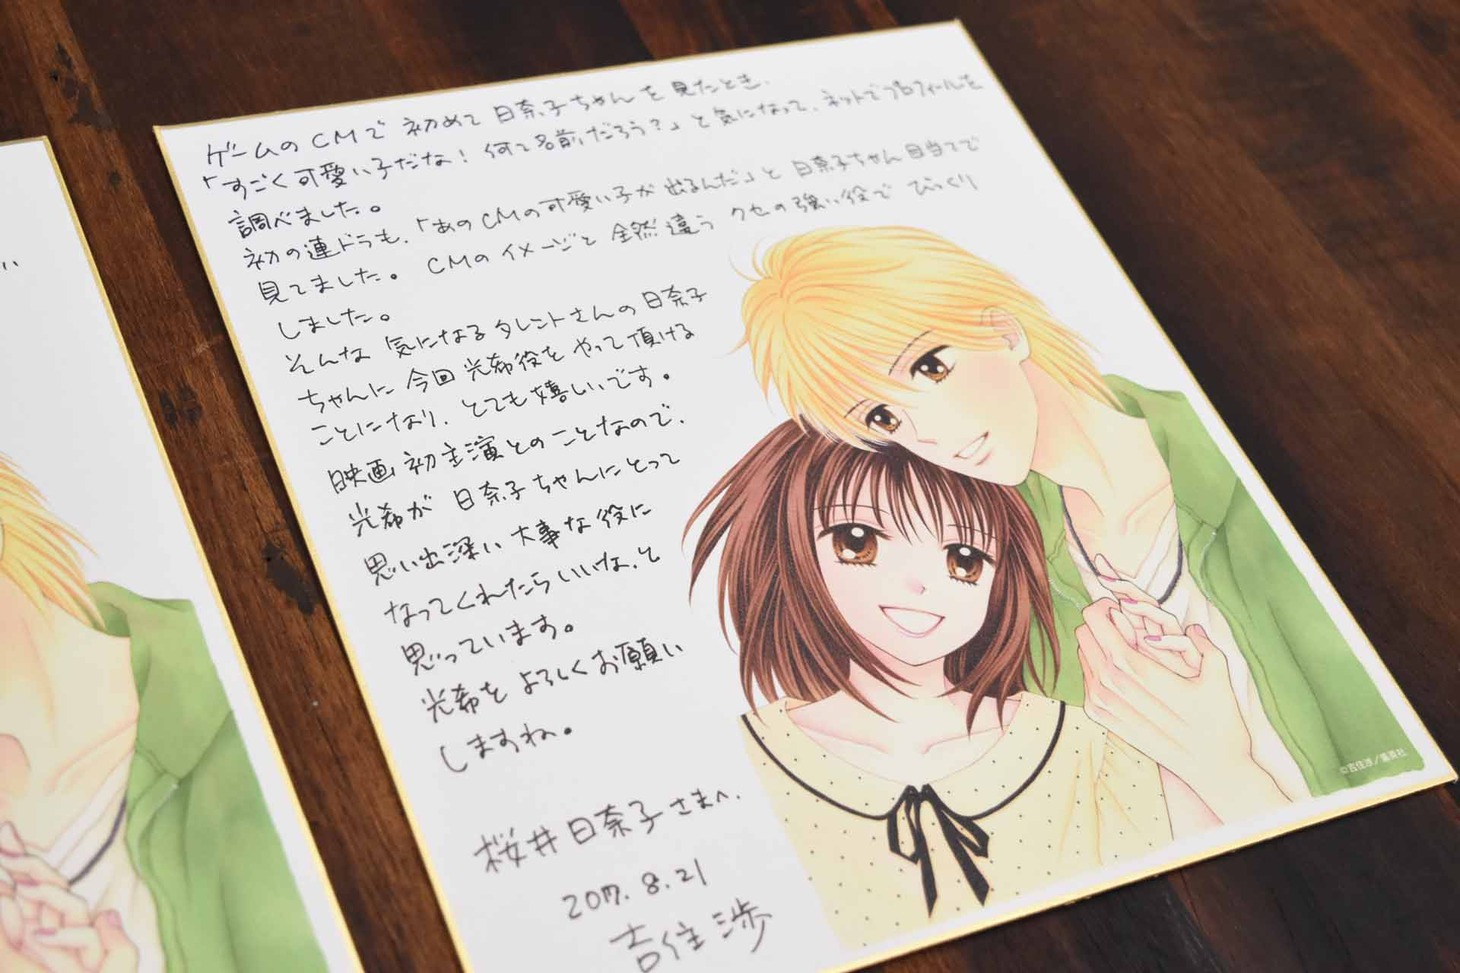 ゲームのCMで初めて日奈子ちゃんを見たとき、
「すごく可愛い子だな！何て名前だろう？」と気になって、ネットでプロフィールを
調べました。
初の連ドラも、「あのCMの可愛い子が出るんだ」と日奈子ちゃん目当てで
見てました。CMのイメージと全然違うクセの強い役でびっくり
しました。
そんな気になるタレントさんの日奈子
ちゃんに今回光希役をやって頂ける
ことになり、とても嬉しいです。
映画初主演とのことなので、
光希が日奈子ちゃんにとって
思い出深い大事な役に
なってくれたらいいな、と
思っています。
光希をよろしくお願い
しますね。
桜井日奈子さまへ、
2017.8.21
吉住渉
©吉住渉／集英社